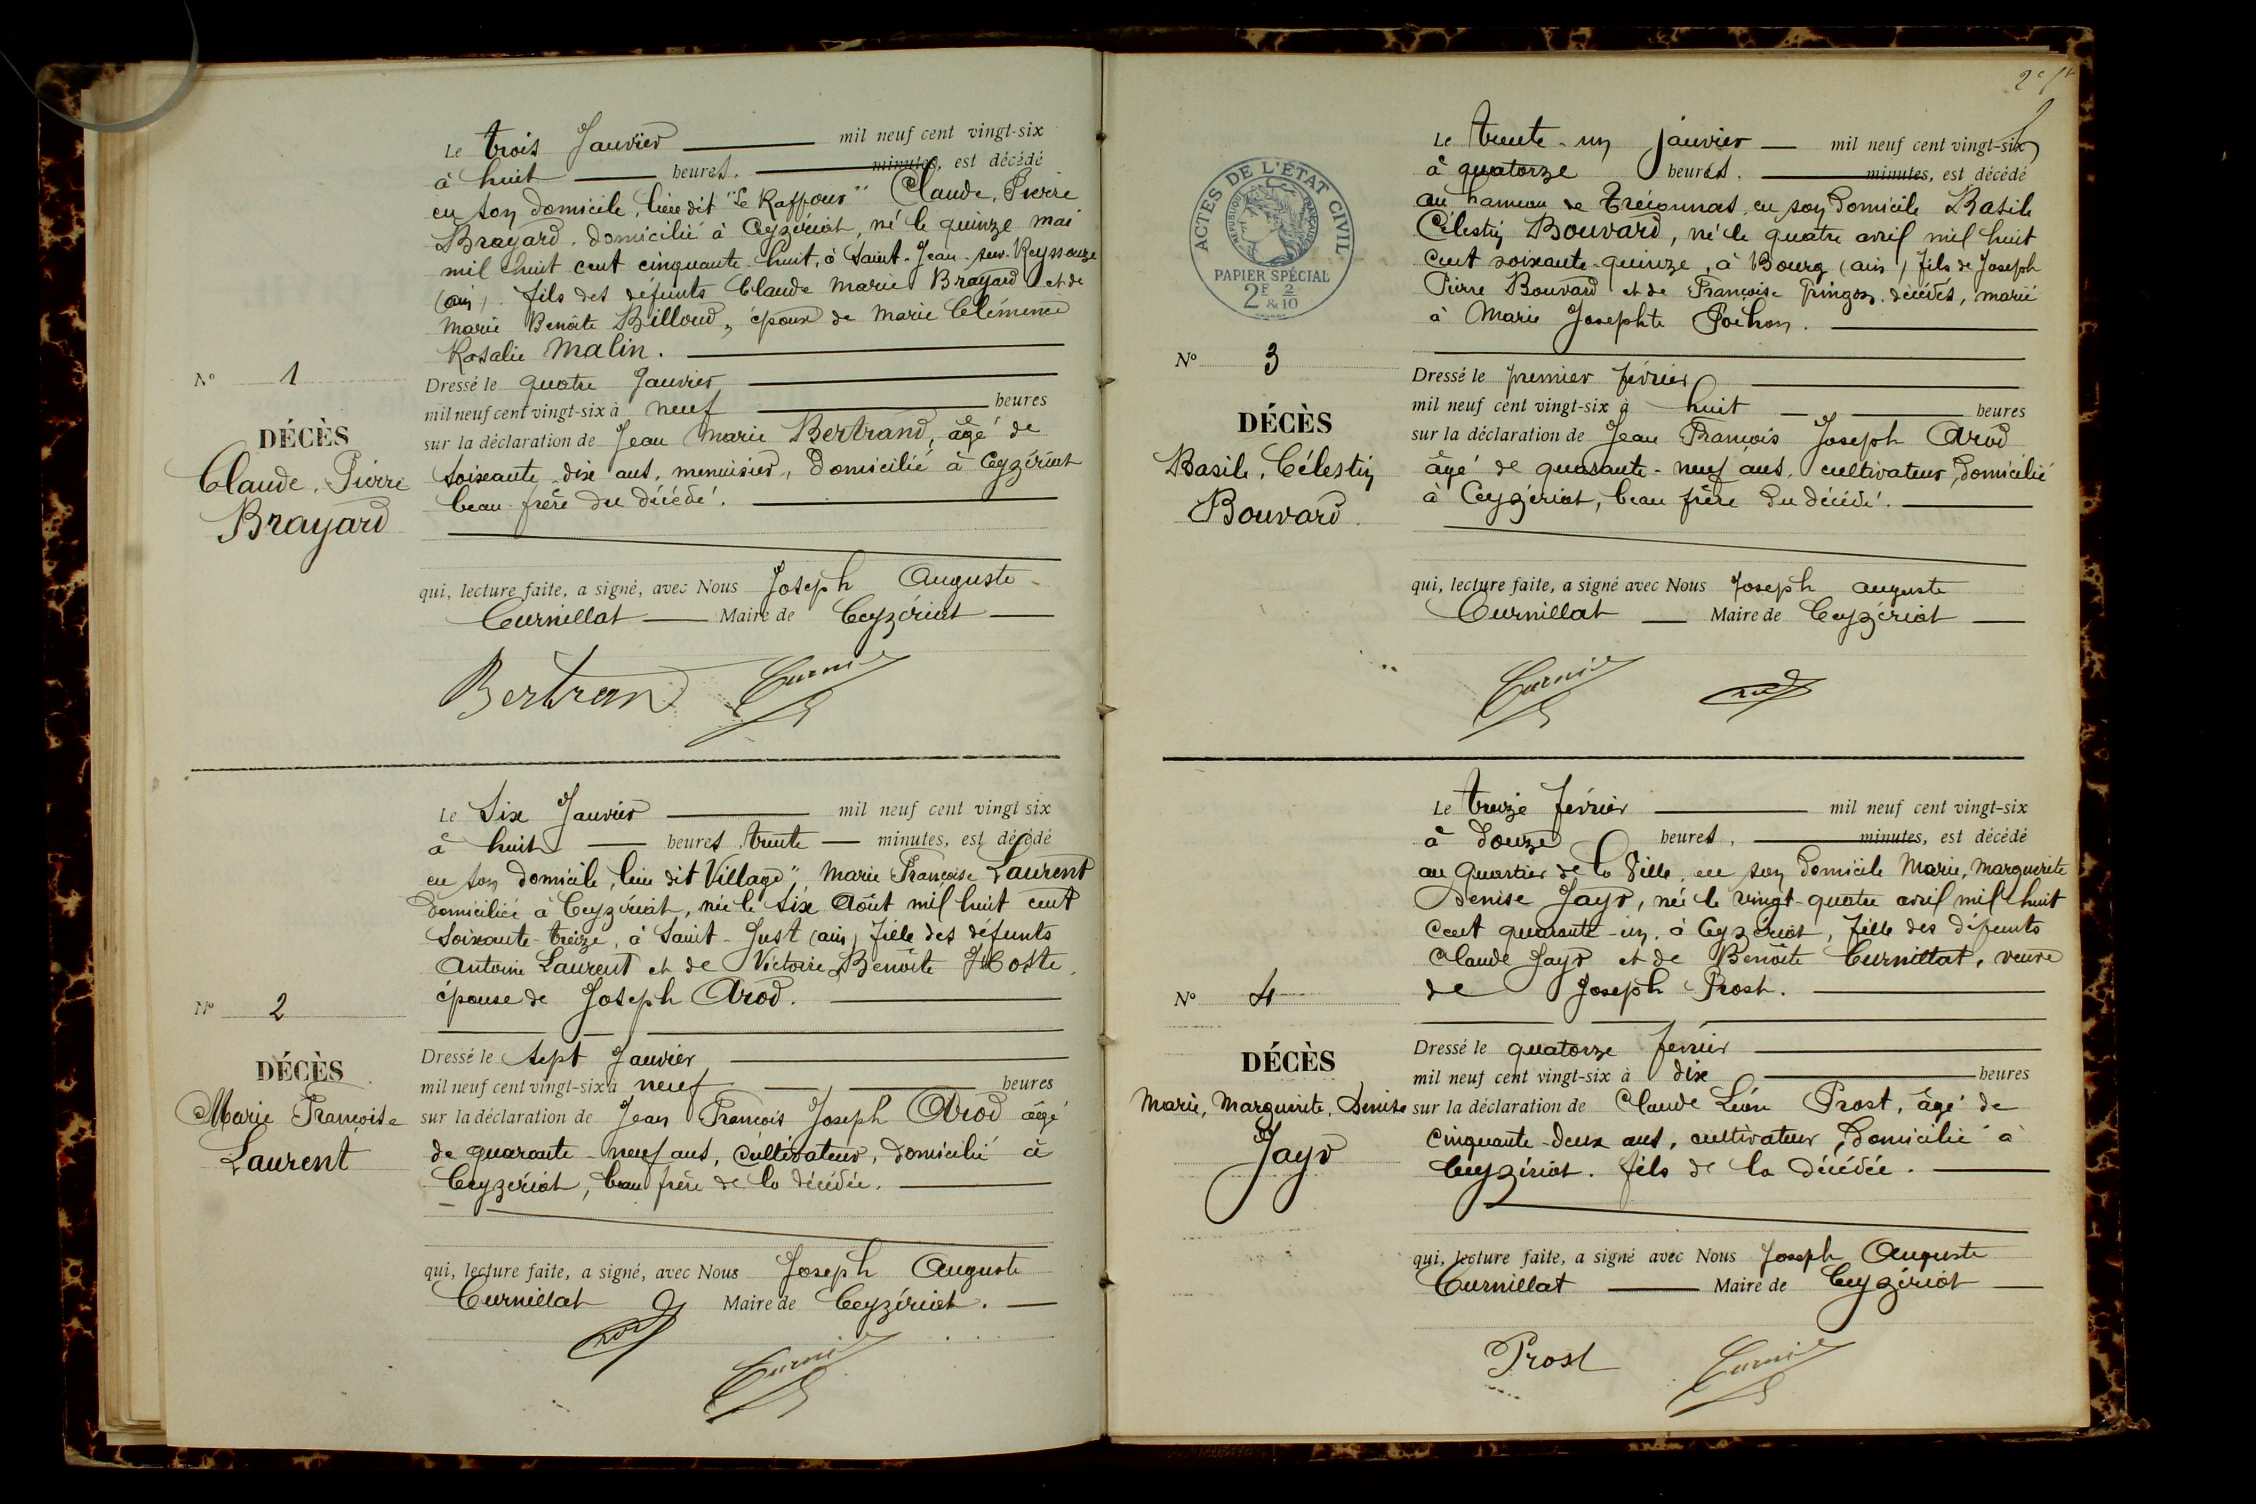 Le trois Janvier mil neuf cent vingt-six
à huit heures. minutes, est décédé
en son domicile, lieu dit "Le Raffour" Claude, Pierre
Brayard. domicilié à Ceyzériat, né le quinze mai
mil huit cent cinquante-huit, à Saint-Jean-sur-Reyssouze
(ain). fils des défunts Claude Marie Brayard et de
Marie Benoîte Billoud, époux de Marie Clémence
Rosalie Malin.
N° 1
Dressé le quatre Janvier
mil neuf cent vingt-six à neuf heures
DÉCÈS
sur la déclaration de Jean Marie Bertrand, âgé de
Claude, Pierre
soixante-dix ans, menuisier, domicilié à Ceyzériat
Brayard
beau-frère du décédé.
qui, lecture faite, a signé, avec Nous Joseph Auguste
Curnillat Maire de Ceyzériat
Bertrand
Le Six Janvier mil neuf cent vingt six
à huit heures trente minutes, est décédé
en son domicile, lieu dit Village" Marie Françoise Laurent
domiciliée à Ceyzériat, née le Six Août mil huit cent
soixante-treize, à Saint-Just (ain) fille des défunts
Antoine Laurent et de Victoire, Benoîte
épouse de Joseph Arod.
N° 2
Dressé le sept Janvier
mil neuf cent vingt-six à neuf heures
DÉCÈS
Marie Françoise
Laurent
sur la déclaration de Jean François Joseph Arod âgé
de quarante-neuf ans, cultivateur, domicilié à
Ceyzériat, beau frère de la décédée.
qui, lecture faite, a signé, avec Nous Joseph Auguste
Curnillat Maire de Ceyzériat.
ACTES DE L'ÉTAT CIVIL
RÉPUBLIQUE FRANÇAISE
PAPIER SPÉCIAL
2F & 2/10
Le trente-un janvier mil neuf cent vingt-six
à quatorze heures. minutes, est décédé
au hameau de Treconnas, en son domicile Basile
Célestin Bouvard, né le quatre avril mil huit
cent soixante-quinze, à Bourg (ain) fils de Joseph
Pierre Bouvard et de Françoise Pingon, décédés, marié
à Marie Josephte Pochon.
N° 3
Dressé le premier février
mil neuf cent vingt-six à huit heures
DÉCÈS
Basile, Célestin
Bouvard.
sur la déclaration de Jean François Joseph Arod
âgé de quarante-neuf ans, cultivateur, domicilié
à Ceyzériat, beau frère du décédé.
qui, lecture faite, a signé avec Nous Joseph auguste
Curnillat Maire de Ceyzériat
Le treize février mil neuf cent vingt-six
à douze heures, minutes, est décédé
au quartier de la Ville, en son domicile Marie, Marguerite
Denise Jayr, née le vingt-quatre avril mil huit
cent quarante-un, à Ceyzériat, fille des défunts
Claude Jayr et de Benoîte Curnillat, veuve
de Joseph Prost.
N° 4
Dressé le quatorze février
mil neuf cent vingt-six à dix heures
DÉCÈS
Marie, Marguerite, Denise
Jayr
sur la déclaration de Claude Léon Prost, âgé de
cinquante-deux ans, cultivateur, domicilié à
Ceyzériat. fils de la décédée.
qui, lecture faite, a signé avec Nous Joseph Auguste
Curnillat Maire de Ceyzériat
Prost